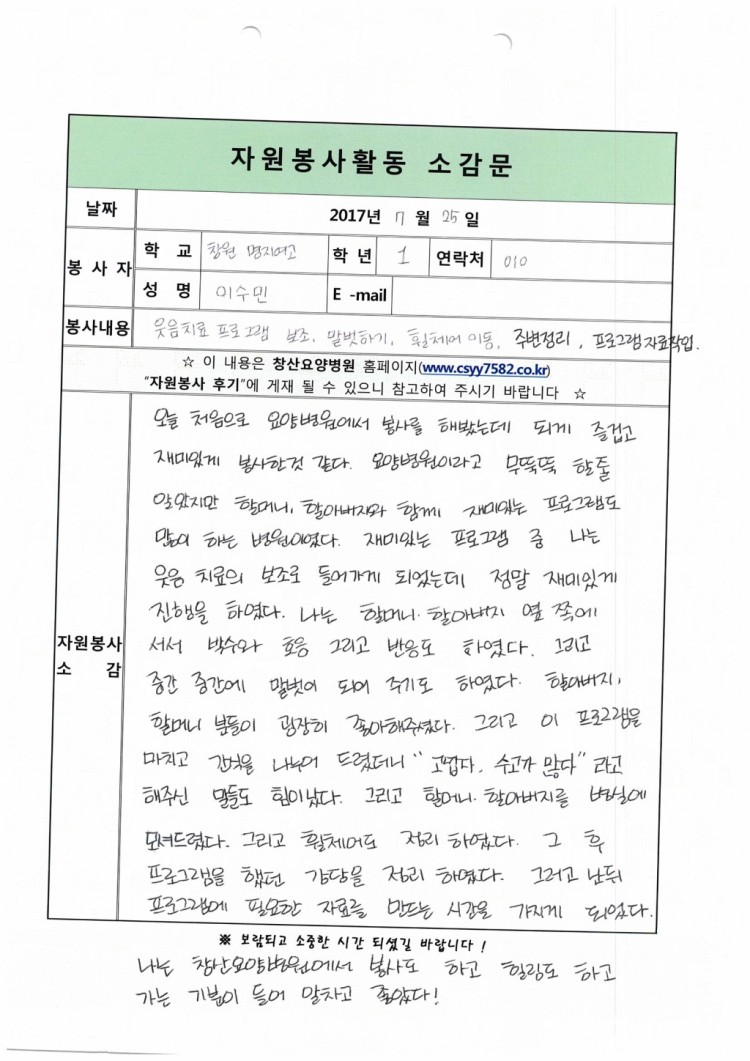 자원봉사활동 소감문
날짜 2017년 7 월 25 일
봉 사 자 학 교 창원 명지여고 학 년 1 연락처 010
성 명 이수민 E -mail
봉사내용 웃음치료 프로그램 보조, 말벗하기, 휠체어 이동, 주변정리, 프로그램자료작업.
☆ 이 내용은 창산요양병원 홈페이지(www.csyy7582.co.kr)
"자원봉사 후기"에 게재 될 수 있으니 참고하여 주시기 바랍니다 ☆
자원봉사
소 감
오늘 처음으로 요양병원에서 봉사를 해봤는데 되게 즐겁고
재미있게 봉사한것 같다. 요양병원이라고 무뚝뚝 할줄
알았지만 할머니, 할아버지와 함께 재미있는 프로그램도
많이 하는 병원이였다. 재미있는 프로그램 중 나는
웃음 치료의 보조로 들어가게 되었는데 정말 재미있게
진행을 하였다. 나는 할머니·할아버지 옆 쪽에
서서 박수와 호응 그리고 반응도 하였다. 그리고
중간 중간에 말벗이 되어 주기도 하였다. 할아버지,
할머니 분들이 굉장히 좋아해주셨다. 그리고 이 프로그램을
마치고 간식을 나누어 드렸더니 "고맙다, 수고가 많다" 라고
해주신 말들도 힘이났다. 그리고 할머니·할아버지를 병실에
모셔드렸다. 그리고 휠체어도 정리 하였다. 그 후
프로그램을 했던 강당을 정리 하였다. 그러고 난뒤
프로그램에 필요한 자료를 만드는 시간을 가지게 되었다.
※ 보람되고 소중한 시간 되셨길 바랍니다 !
나는 창산요양병원에서 봉사도 하고 힐링도 하고
가는 기분이 들어 알차고 좋았다!